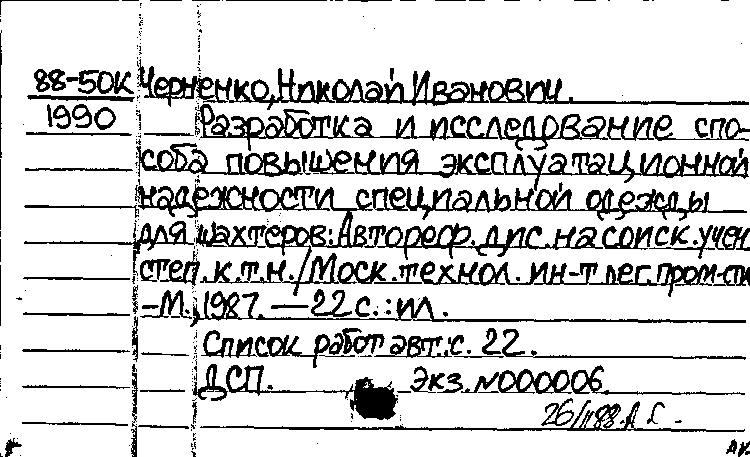 88-50К Черненко, Николай Иванович.
1990 Разработка и исследование спо-
соба повышения эксплуатационной
надежности специальной одежды
для шахтеров: Автореф. дис. на соиск. учен.
степ. к.т.н. / Моск. технол. ин-т лег. пром-сти
-М., 1987. — 22 с. : ил.
Список работ авт.: с. 22.
ДСП. Экз. N000006.